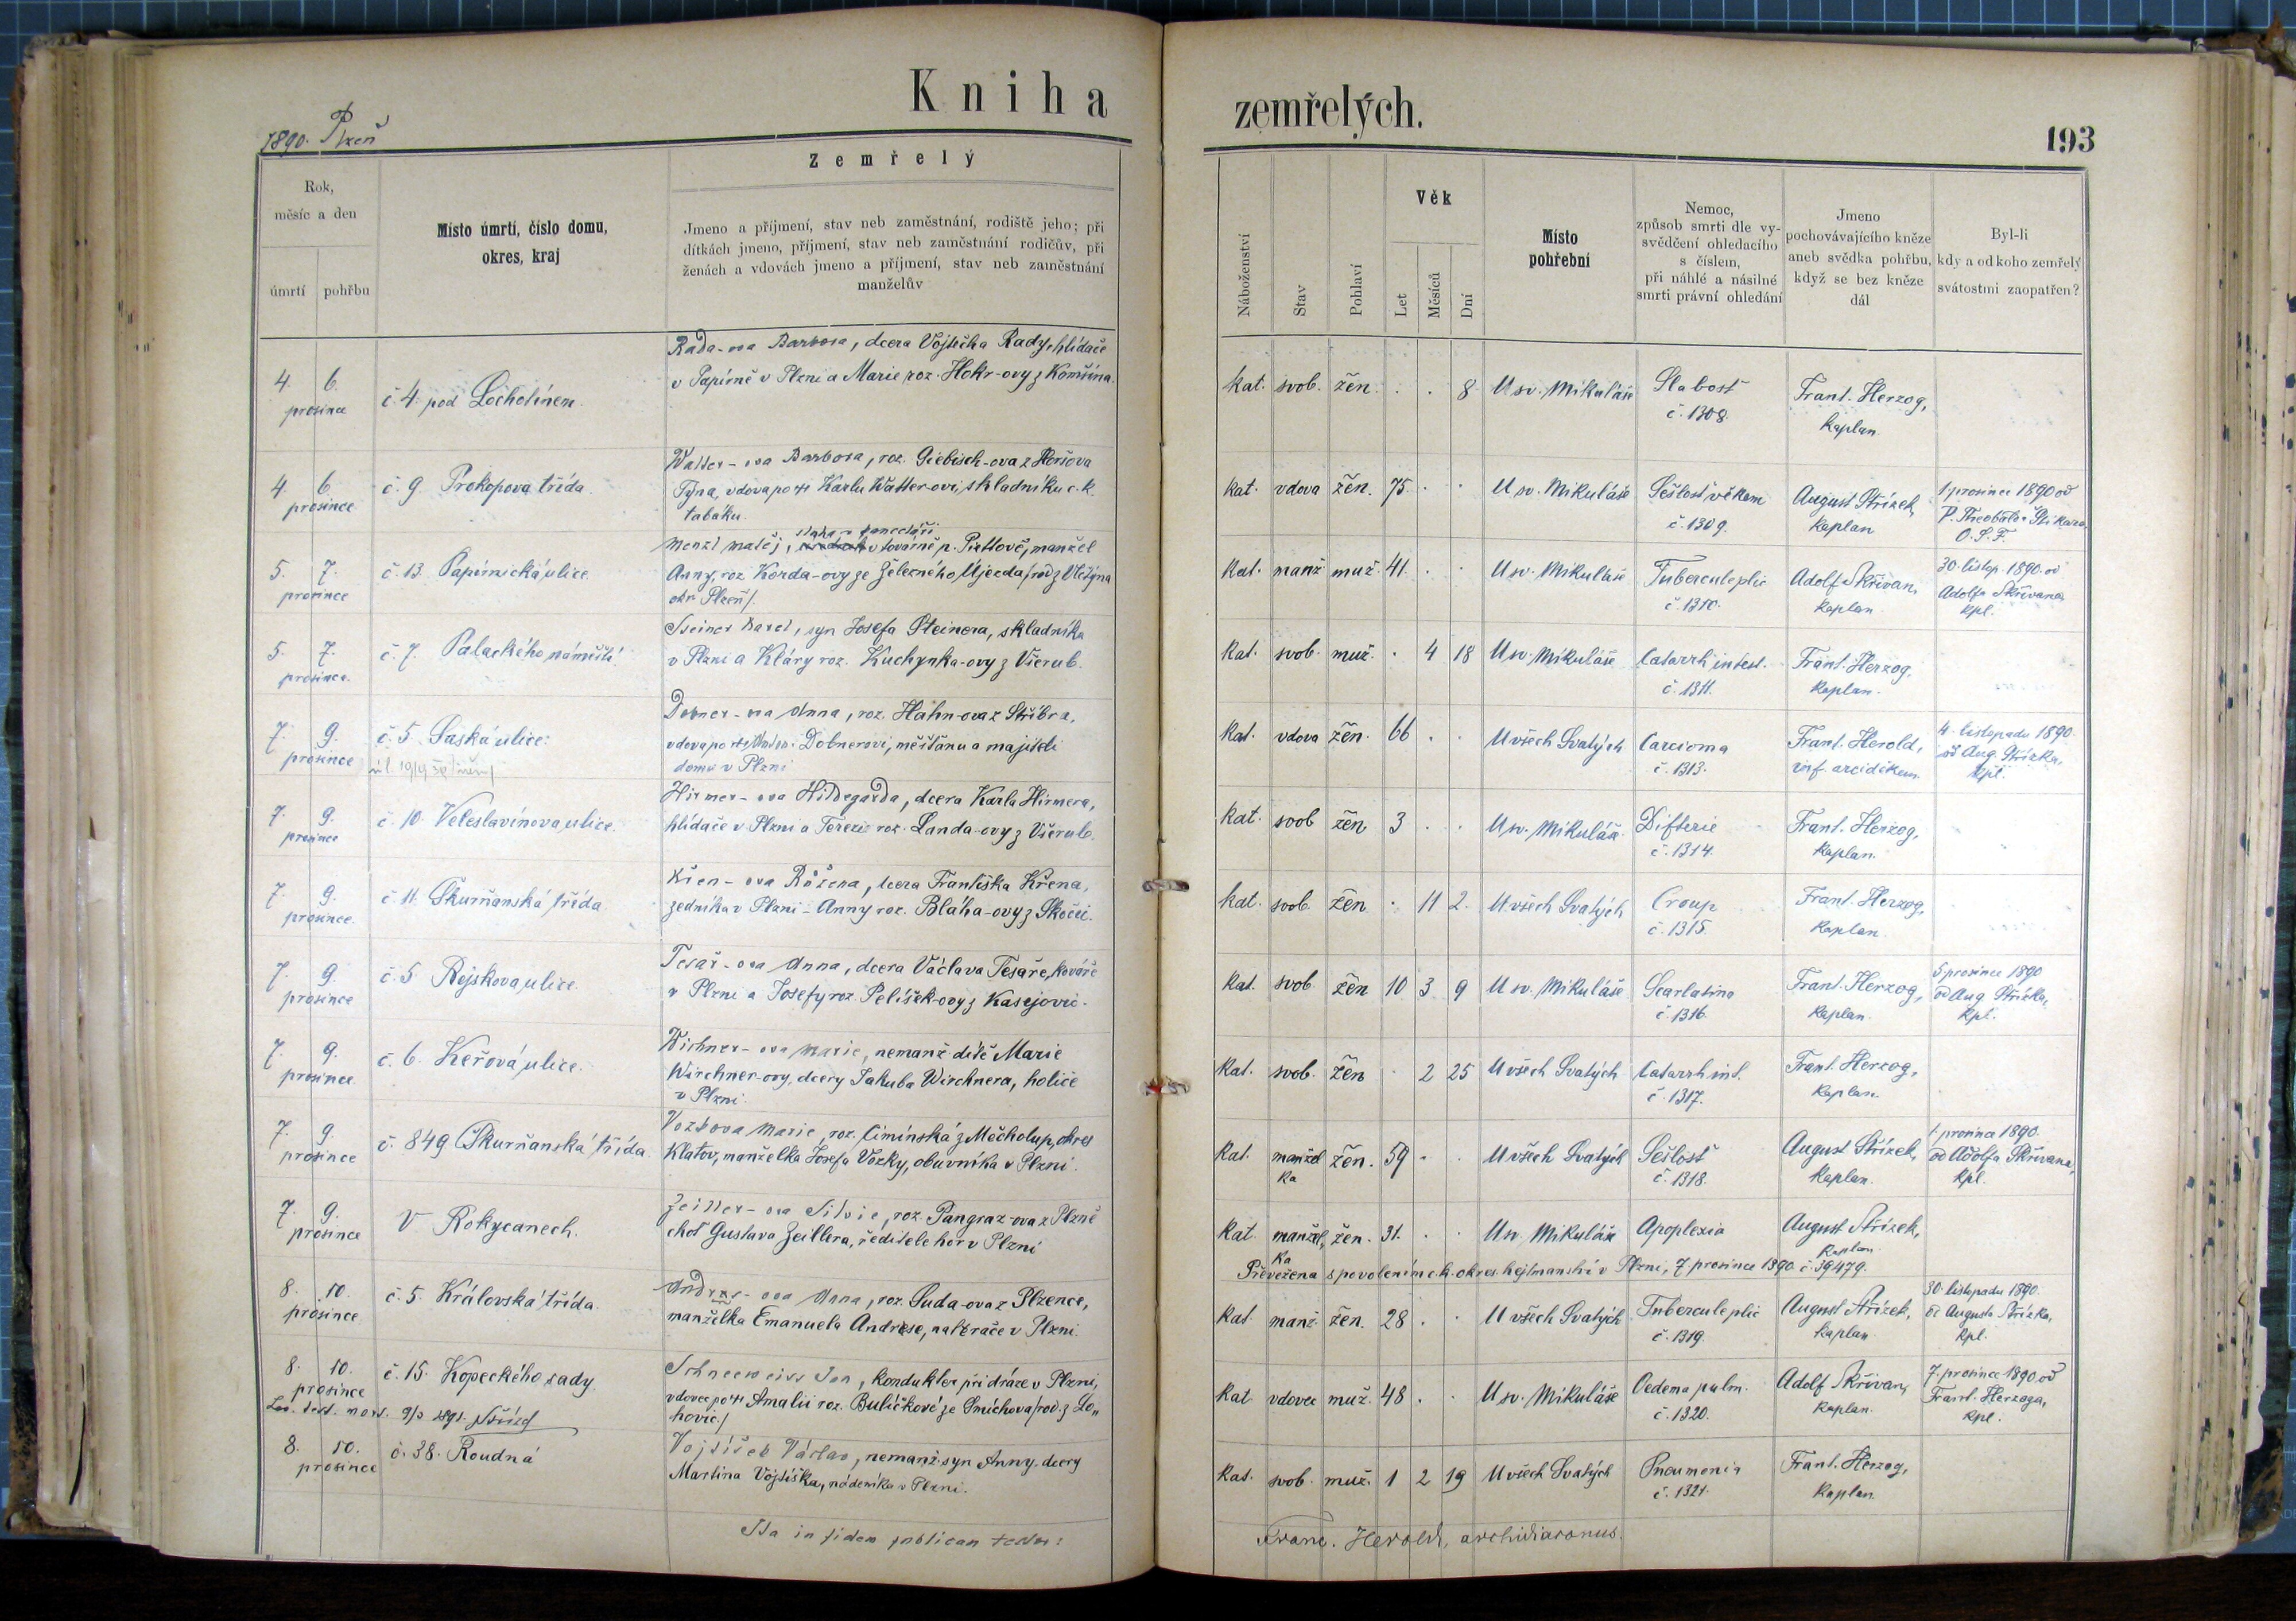 Kniha
zemřelých.
1890. Plzeň
193
Zemřelý
Rok,
měsíc a den
úmrtí
pohřbu
Místo úmrtí, číslo domu,
okres, kraj
Jmeno a příjmení, stav neb zaměstnání, rodiště jeho; při
dítkách jmeno, příjmení, stav neb zaměstnání rodičův, při
ženách a vdovách jmeno a příjmení, stav neb zaměstnání
manželův
Náboženství
Stav
Pohlaví
Věk
Let
Měsíců
Dní
Místo
pohřební
Nemoc,
způsob smrti dle vy-
svědčení ohledacího
s číslem,
při náhlé a násilné
smrti právní ohledání
Jmeno
pochovávajícího kněze
aneb svědka pohřbu,
když se bez kněze
dál
Byl-li
kdy a od koho zemřelý
svátostmi zaopatřen?
4. 6.
prosince
č. 4. pod Lochotínem.
Rada-ova Barbora, dcera Vojtěcha Rady, hlídače
v Papírně v Plzni a Marie roz. Hokr-ovy z Komšína.
kat. svob. žen. . . 8 U sv. Mikuláše
Slabost
č. 1308.
Frant. Herzog,
kaplan.
4. 6.
prosince
č. 9. Prokopova třída.
Watter-ova Barbora, roz. Giebisch-ova z Horšova
Týna, vdova po † Karlu Watter-ovi, skladníku c. k.
tabáku.
kat. vdova žen. 75. . . U sv. Mikuláše
Sešlost věkem
č. 1309.
August Střízek,
kaplan
1 prosince 1890 od
P. Theobalda
O. S. F.
5. 7.
prosince
č. 13. Papírnická ulice.
sluha v kanceláři
Menzl Matěj, v továrně p. Piettově, manžel
Anny, roz. Korda-ovy ze Železného Újezda /rod. z
okr. Plzeň/.
kat. manž. muž. 41. . . U sv. Mikuláše
č. 1310.
Adolf Skřivan,
kaplan.
30. listop. 1890. od
Adolfa Skřivana,
kpl.
5. 7.
prosince.
č. 7. Palackého náměstí.
Steiner Karel, syn Josefa Steinera, skladníka
v Plzni a Kláry roz. Kuchynka-ovy z Všerub.
kat. svob. muž. . 4 18 U sv. Mikuláše
Catarrh intest.
č. 1311.
Frant. Herzog,
kaplan.
7. 9.
prosince
č. 5. Saská ulice.
Dobner-ova Anna, roz. Hahn-ova z Stříbra,
vdova po † Dobnerovi, měšťanu a majiteli
domu v Plzni
kat. vdova žen. 66 . . U všech Svatých
Carcioma
č. 1313.
Frant. Herold,
inf. arciděkan.
4. listopadu 1890.
od Aug. Střízka,
kpl.
7. 9.
prosince
č. 10. Veleslavínova ulice.
Hirmer-ova Hildegarda, dcera Karla Hirmera,
hlídače v Plzni a Terezie roz. Landa-ovy z Všerub.
kat. svob žen 3 . . U sv. Mikuláše.
Difterie
č. 1314.
Frant. Herzog,
kaplan.
7. 9.
prosince.
č. 11. Škurňanská třída.
Křen-ova Růžena, dcera Františka Křena,
zedníka v Plzni - Anny roz. Bláha-ovy z Skočic.
kat. svob. žen. . 11 2. U všech Svatých
Croup
č. 1315.
Frant. Herzog,
kaplan.
7. 9.
prosince
č. 5 Rejskova ulice.
Tesař-ova Anna, dcera Václava Tesaře, kováře
v Plzni a Josefy roz. Pelíšek-ovy z Kasejovic.
kat. svob. žen 10 3 9 U sv. Mikuláše
Scarlatina
č. 1316.
Frant. Herzog,
kaplan.
5 prosince 1890
od Aug Střízka,
kpl.
7. 9.
prosince
č. 6. Keřová ulice.
Wirchner-ova Marie, nemanž. dítě Marie
Wirchner-ovy, dcery Jakuba Wirchnera, holiče
v Plzni.
kat. svob. žen . 2 25 U všech Svatých
Catarrh int.
č. 1317.
Frant. Herzog,
kaplan.
7. 9.
prosince
č. 849 Škurňanská třída
Vozkova Marie, roz. Cimínská z Měcholup, okres
Klatov, manželka Josefa Vozky, obuvníka v Plzni.
kat. manžel
ka žen. 59 . . U všech Svatých
Sešlost
č. 1318.
August Střízek,
kaplan.
1. prosince 1890.
od Adolfa Skřivana,
kpl.
7. 9.
prosince
V Rokycanech.
Zeiller-ova Silvie, roz. Pangraz-ova z Plzně
choť Gustava Zeillera, ředitele hor v Plzni
kat. manžel,
ka žen. 31. . . U sv. Mikuláše
Apoplexia
August Střízek,
kaplan.
Převežena s povolením c. k. okres. hejtmanství v Plzni, 7 prosince 1890. č. 39479.
8. 10.
prosince
č. 5. Královská třída.
Andres-ova Anna, roz. Suda-ova z Plzence,
manželka Emanuela Andrese, natěrače v Plzni.
kat. manž. žen. 28 . . U všech Svatých
č. 1319.
August Střízek,
kaplan.
30. listopadu 1890.
od Augusta Střízka,
kpl.
8. 10.
prosince
č. 15. Kopeckého sady.
Schneeweiss Jan, kondukter při dráze v Plzni,
vdovec po † Amalii roz. Bulíčkové ze Smíchova /rod. z Lo„
hovic/
kat vdovec muž. 48 . . U sv. Mikuláše
Oedema pulm.
č. 1320.
Adolf Skřivan,
kaplan.
7. prosince 1890. od
Frant. Herzoga,
kpl.
8. 10.
prosince
č. 38. Roudná
Vojtíšek Václav, nemanž. syn Anny, dcery
Martina Vojtíška, nádeníka v Plzni.
kat. svob. muž. 1 2 19 U všech Svatých
Pneumonia
č. 1321.
Frant. Herzog,
kaplan.
Ita in fidem publicam testor:
Franc. Herold, archidiaconus.